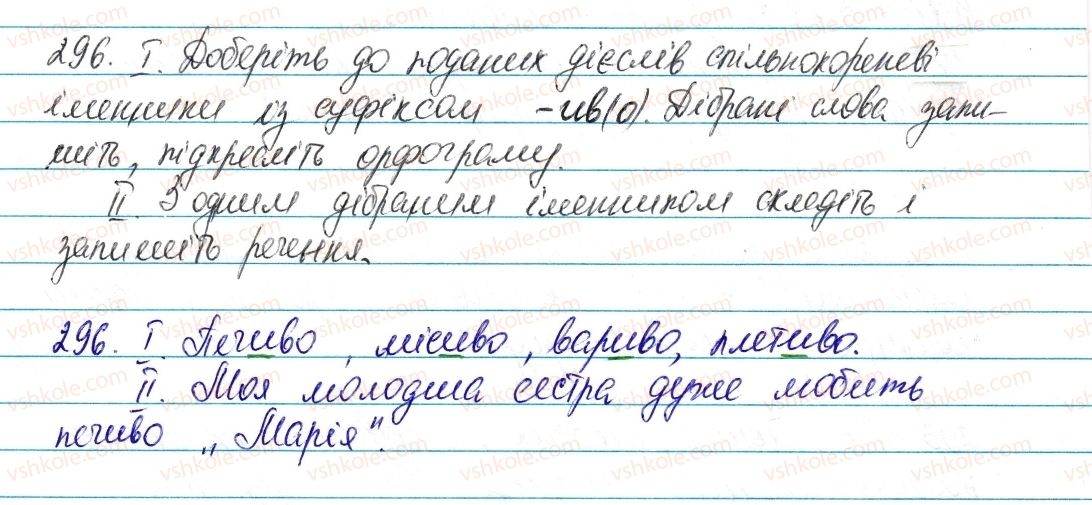 296. I. Доберіть до поданих дієслів спільнокореневі
іменники із суфіксом -ив(о). Дібрані слова запи-
шіть, підкресліть орфограму.
II. З одним дібраним іменником складіть і
запишіть речення.
296. I. Печиво, місиво, вариво, плетиво.
II. Моя молодша сестра дуже любить
печиво „Марія".